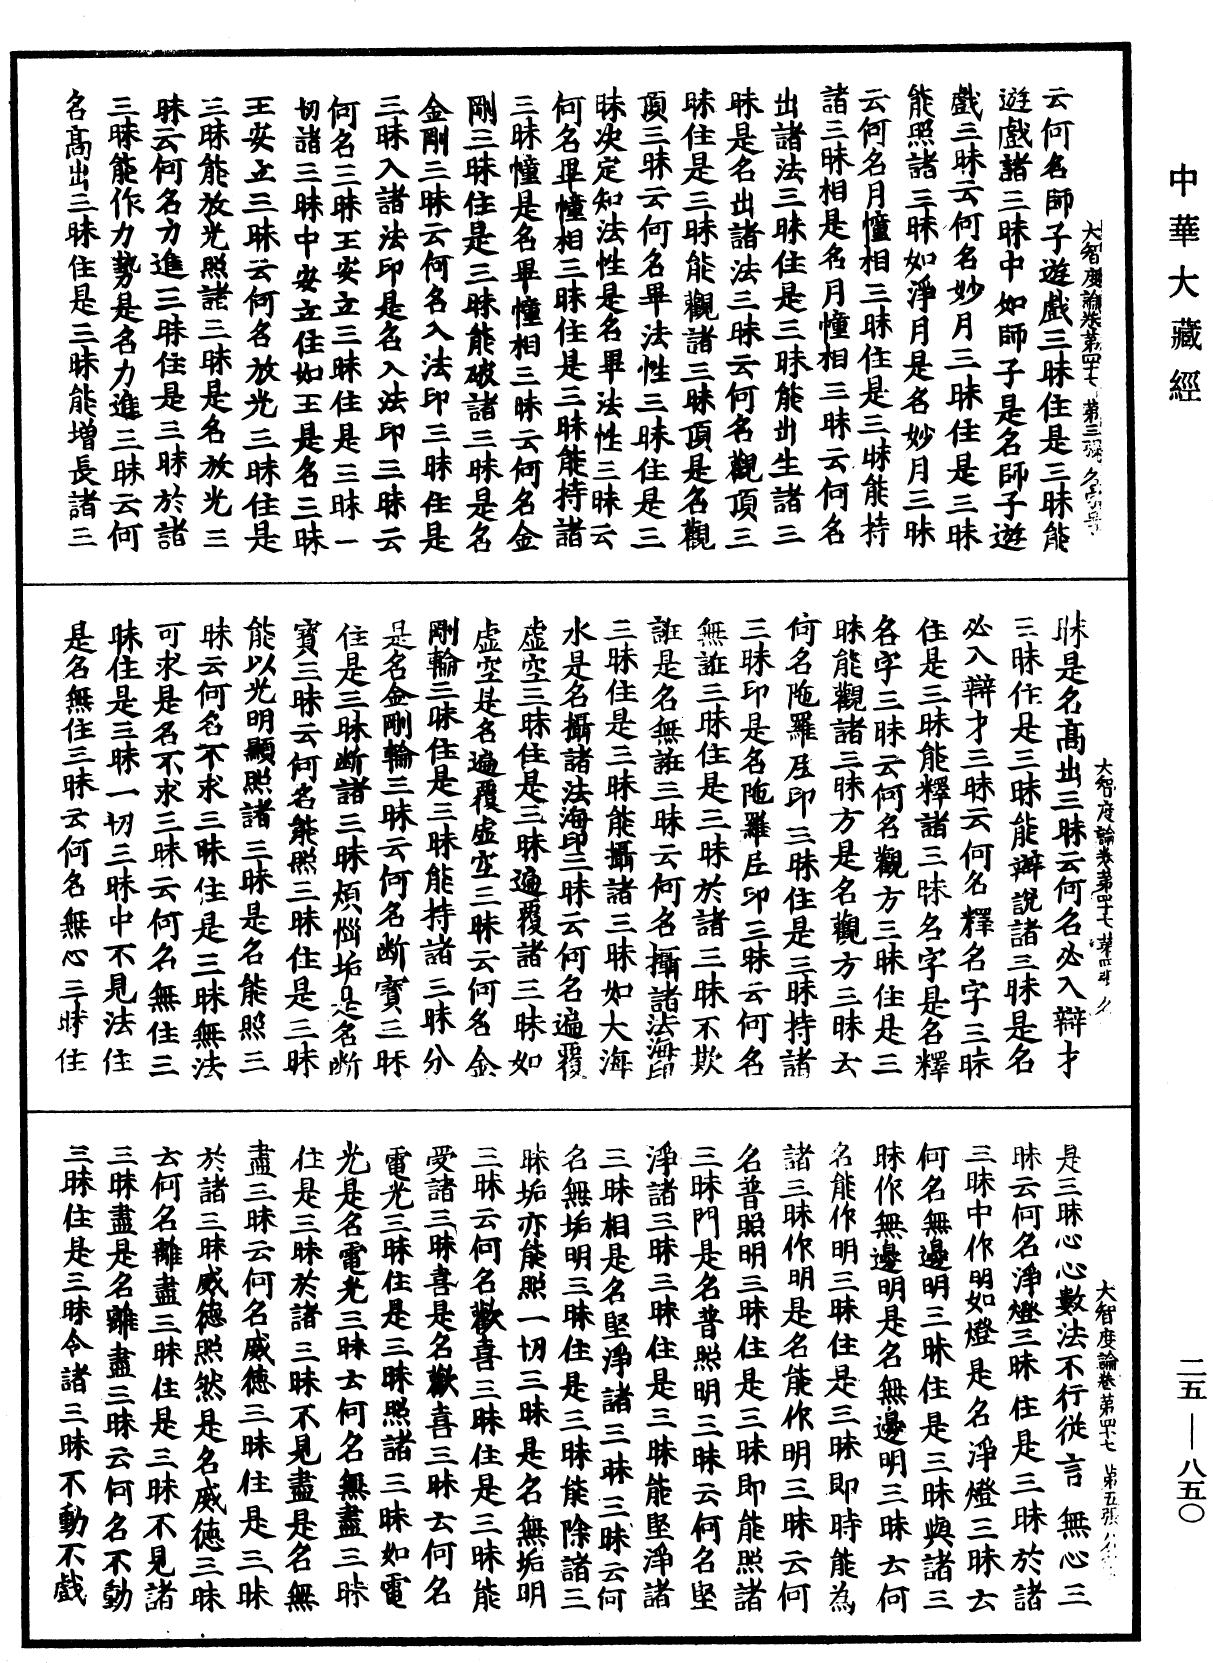 中華大藏經
大智度論卷第四十七 第三張 名字号
云何名師子遊戲三昧住是三昧能
遊戲諸三昧中如師子是名師子遊
戲三昧云何名妙月三昧住是三昧
能照諸三昧如淨月是名妙月三昧
云何名月幢相三昧住是三昧能持
諸三昧相是名月幢相三昧云何名
出諸法三昧住是三昧能出生諸三
昧是名出諸法三昧云何名觀頂三
昧住是三昧能觀諸三昧頂是名觀
頂三昧云何名畢法性三昧住是三
昧決定知法性是名畢法性三昧云
何名畢幢相三昧住是三昧能持諸
三昧幢是名畢幢相三昧云何名金
剛三昧住是三昧能破諸三昧是名
金剛三昧云何名入法印三昧住是
三昧入諸法印是名入法印三昧云
何名三昧王安立三昧住是三昧一
切諸三昧中安立住如王是名三昧
王安立三昧云何名放光三昧住是
三昧能放光照諸三昧是名放光三
昧云何名力進三昧住是三昧於諸
三昧能作力勢是名力進三昧云何
名高出三昧住是三昧能增長諸三
大智度論卷第四十七 第四張 名
昧是名高出三昧云何名必入辯才
三昧住是三昧能辯說諸三昧是名
必入辯才三昧云何名釋名字三昧
住是三昧能釋諸三昧名字是名釋
名字三昧云何名觀方三昧住是三
昧能觀諸三昧方是名觀方三昧云
何名陁羅尼印三昧住是三昧持諸
三昧印是名陁羅尼印三昧云何名
無誑三昧住是三昧於諸三昧不欺
誑是名無誑三昧云何名攝諸法海印
三昧住是三昧能攝諸三昧如大海
水是名攝諸法海印三昧云何名遍覆
虛空三昧住是三昧遍覆諸三昧如
虛空是名遍覆虛空三昧云何名金
剛輪三昧住是三昧能持諸三昧分
是名金剛輪三昧云何名斷寶三昧
住是三昧斷諸三昧煩惱垢是名斷
寶三昧云何名能照三昧住是三昧
能以光明顯照諸三昧是名能照三
昧云何名不求三昧住是三昧無法
可求是名不求三昧云何名無住三
昧住是三昧一切三昧中不見法住
是名無住三昧云何名無心三昧住
大智度論卷第四十七 第五張
是三昧心心數法不行從言無心三
昧云何名淨燈三昧住是三昧於諸
三昧中作明如燈是名淨燈三昧云
何名無邊明三昧住是三昧與諸三
昧作無邊明是名無邊明三昧云何
名能作明三昧住是三昧即時能為
諸三昧作明是名能作明三昧云何
名普照明三昧住是三昧即能照諸
三昧門是名普照明三昧云何名堅
淨諸三昧三昧住是三昧能堅淨諸
三昧相是名堅淨諸三昧三昧云何
名無垢明三昧住是三昧能除諸三
昧垢亦能照一切三昧是名無垢明
三昧云何名歡喜三昧住是三昧能
受諸三昧喜是名歡喜三昧云何名
電光三昧住是三昧照諸三昧如電
光是名電光三昧云何名無盡三昧
住是三昧於諸三昧不見盡是名無
盡三昧云何名威德三昧住是三昧
於諸三昧威德照然是名威德三昧
云何名離盡三昧住是三昧不見諸
三昧盡是名離盡三昧云何名不動
三昧住是三昧令諸三昧不動不戲
二五—八五〇